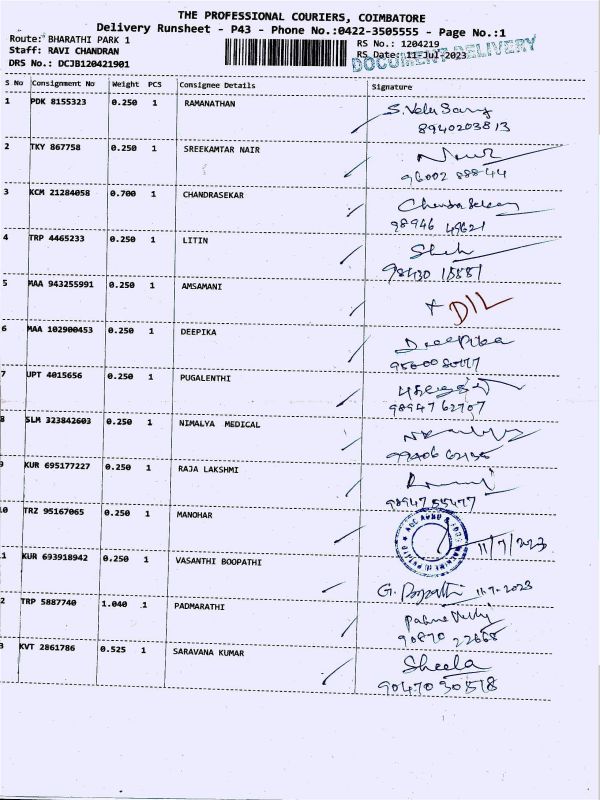 THE PROFESSIONAL COURIERS, COIMBATORE
Delivery Runsheet - P43 - Phone No.:0422-3505555 - Page No.:1
Route: BHARATHI PARK 1
RS No.: 1204219
Staff: RAVI CHANDRAN
RS Date: 11-Jul-2023
DOCUMENT DELIVERY
DRS No.: DCJB120421901
S No Consignment No Weight PCS Consignee Details Signature
1 PDK 8155323 0.250 1 RAMANATHAN
8940203813
2 TKY 867758 0.250 1 SREEKAMTAR NAIR
96002 88844
3 KCM 21284058 0.700 1 CHANDRASEKAR Chandrasekar
98946 49621
4 TRP 4465233 0.250 1 LITIN
98430 15881
5 MAA 943255991 0.250 1 AMSAMANI DIL
6 MAA 102900453 0.250 1 DEEPIKA Deepika
7 UPT 4015656 0.250 1 PUGALENTHI
98947 62707
8 SLM 323842603 0.250 1 NIMALYA MEDICAL
9 KUR 695177227 0.250 1 RAJA LAKSHMI
98947 55477
10 TRZ 95167065 0.250 1 MANOHAR 11/7/2023
11 KUR 693918942 0.250 1 VASANTHI BOOPATHI G. Boopathi 11.7.2023
2 TRP 5887740 1.040 1 PADMARATHI
90870 22668
3 KVT 2861786 0.525 1 SARAVANA KUMAR Sheela
90470 30518